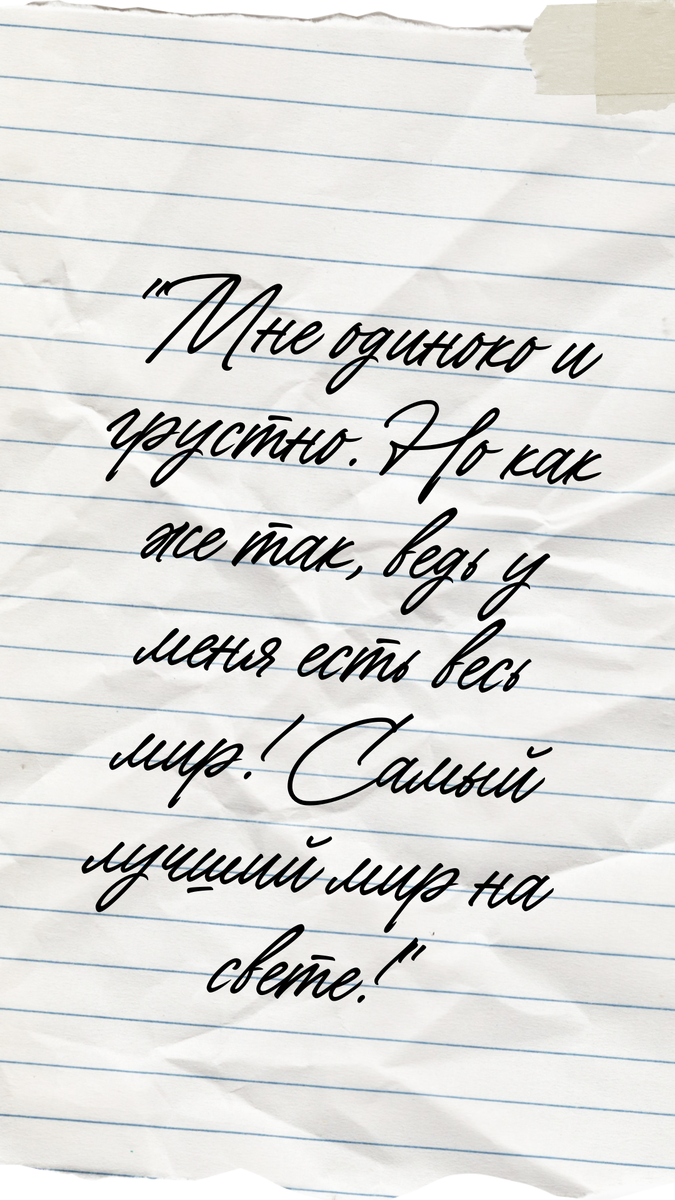 "Мне одиноко и
грустно. Но как
же так, ведь у
меня есть весь
мир! Самый
лучший мир на
свете!"